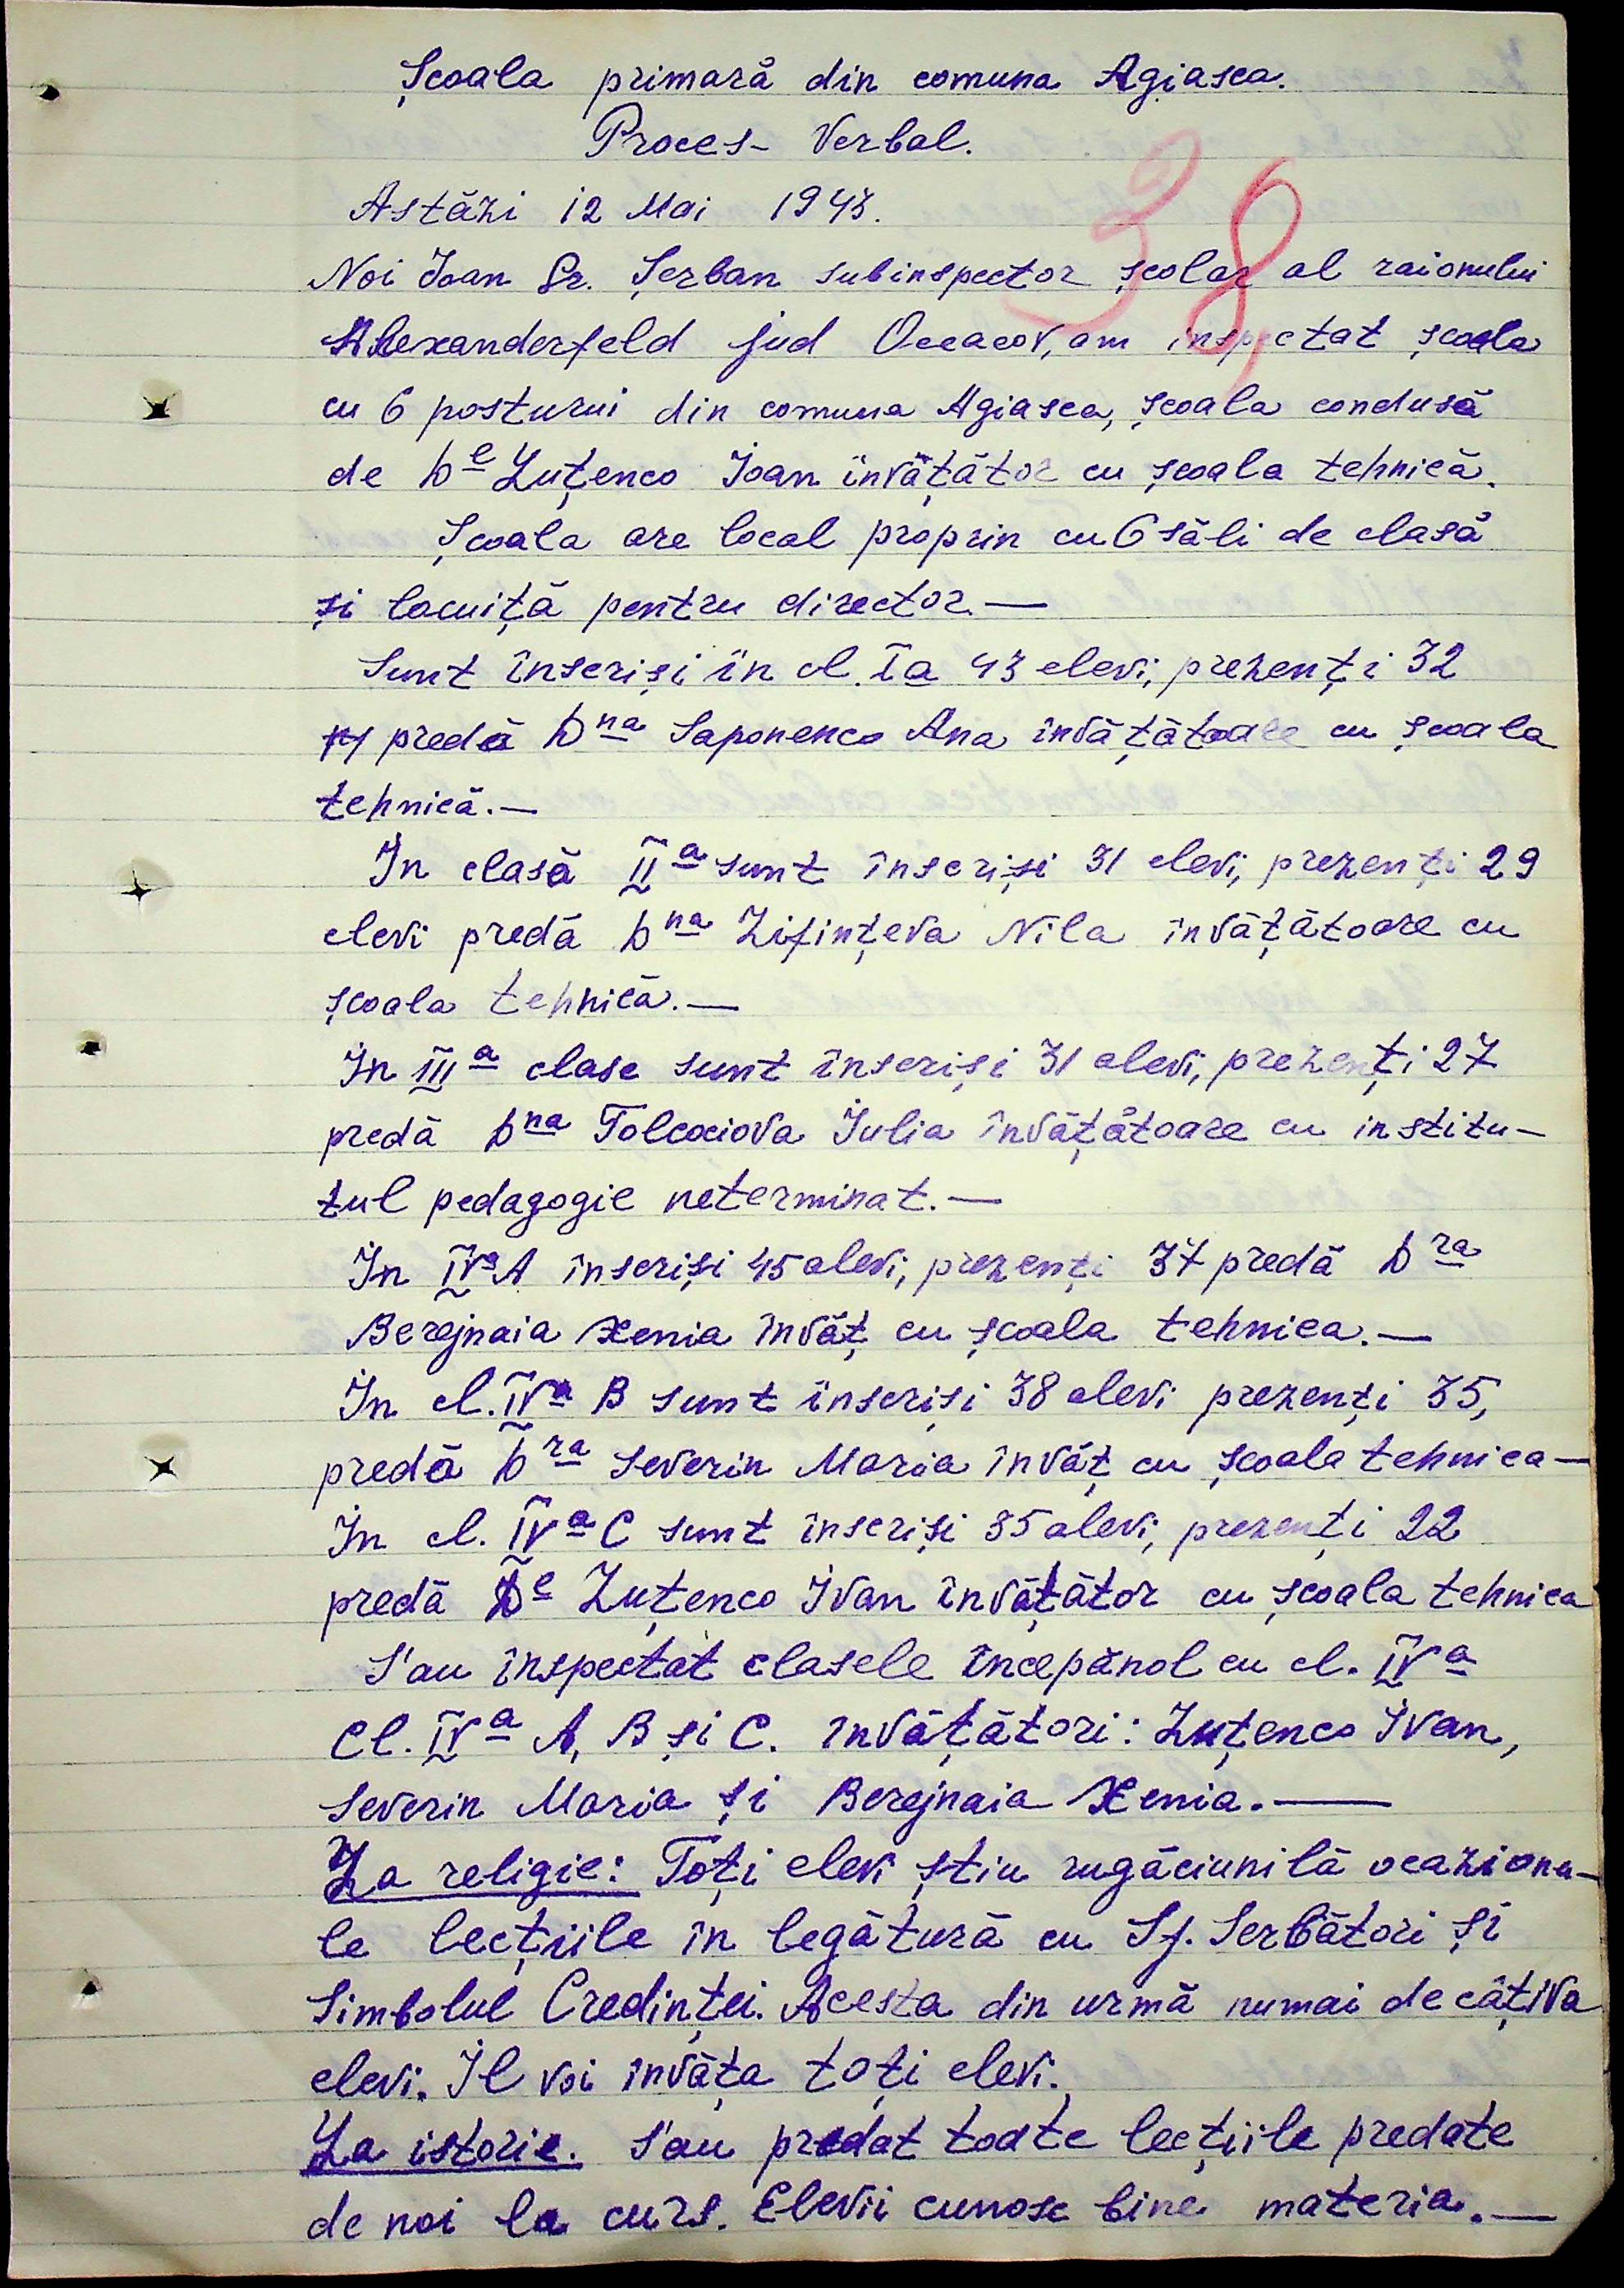 Școala primară din comuna Agiasca.
Proces-Verbal.
38
Astăzi 12 Mai 1943.
Noi Ioan Gr. Șerban subinspector școlar al raionului
Alexanderfeld jud Oceacov, am inspectat școala
cu 6 posturui din comuna Agiasca, școala condusă
de Dl Luțenco Ioan învățător cu școala tehnică.
Școala are local proprin cu 6 săli de clasă
și locuiță pentru director.—
Sunt înseriși în cl. Ia 43 elevi, prezenți 32
predă Dna Saponenco Ana învățătoare cu școala
tehnică.—
In clasă IIa sunt înscriși 31 elevi, prezenți 29
elevi predă Dna Lifințeva Nila învățătoare cu
școala tehnică.—
In IIIa clase sunt înscriși 31 elevi, prezenți 27
predă Dna Tolcociova Iulia învățătoare cu institu-
tul pedagogic neterminat.—
In IVa A înscriși 45 elevi, prezenți 37 predă Dra
Berejnaia Xenia învăț cu școala tehnica.—
In cl. IVa B sunt înscriși 38 elevi prezenți 35,
predă Dra Severin Maria învăț cu școala tehnica—
In cl. IVa C sunt înscriși 35 elevi, prezenți 22
predă Dl Luțenco Ivan învățător cu școala tehnica
S'au inspectat clasele începănd cu cl. IVa
Cl. IVa A, B și C. învățători: Luțenco Ivan,
Severin Maria și Berejnaia Xenia.—
La religie: Toți elevi știu rugăciunilă ocaziona-
le lecțiile în legătură cu Sf. Serbători și
Simbolul Credinței. Acesta din urmă numai de câțiva
elevi. Il voi învăța toți elevi.
La istorie. S'au predat toate lecțiile predate
de noi la curs. Elevii cunosc bine materia.—